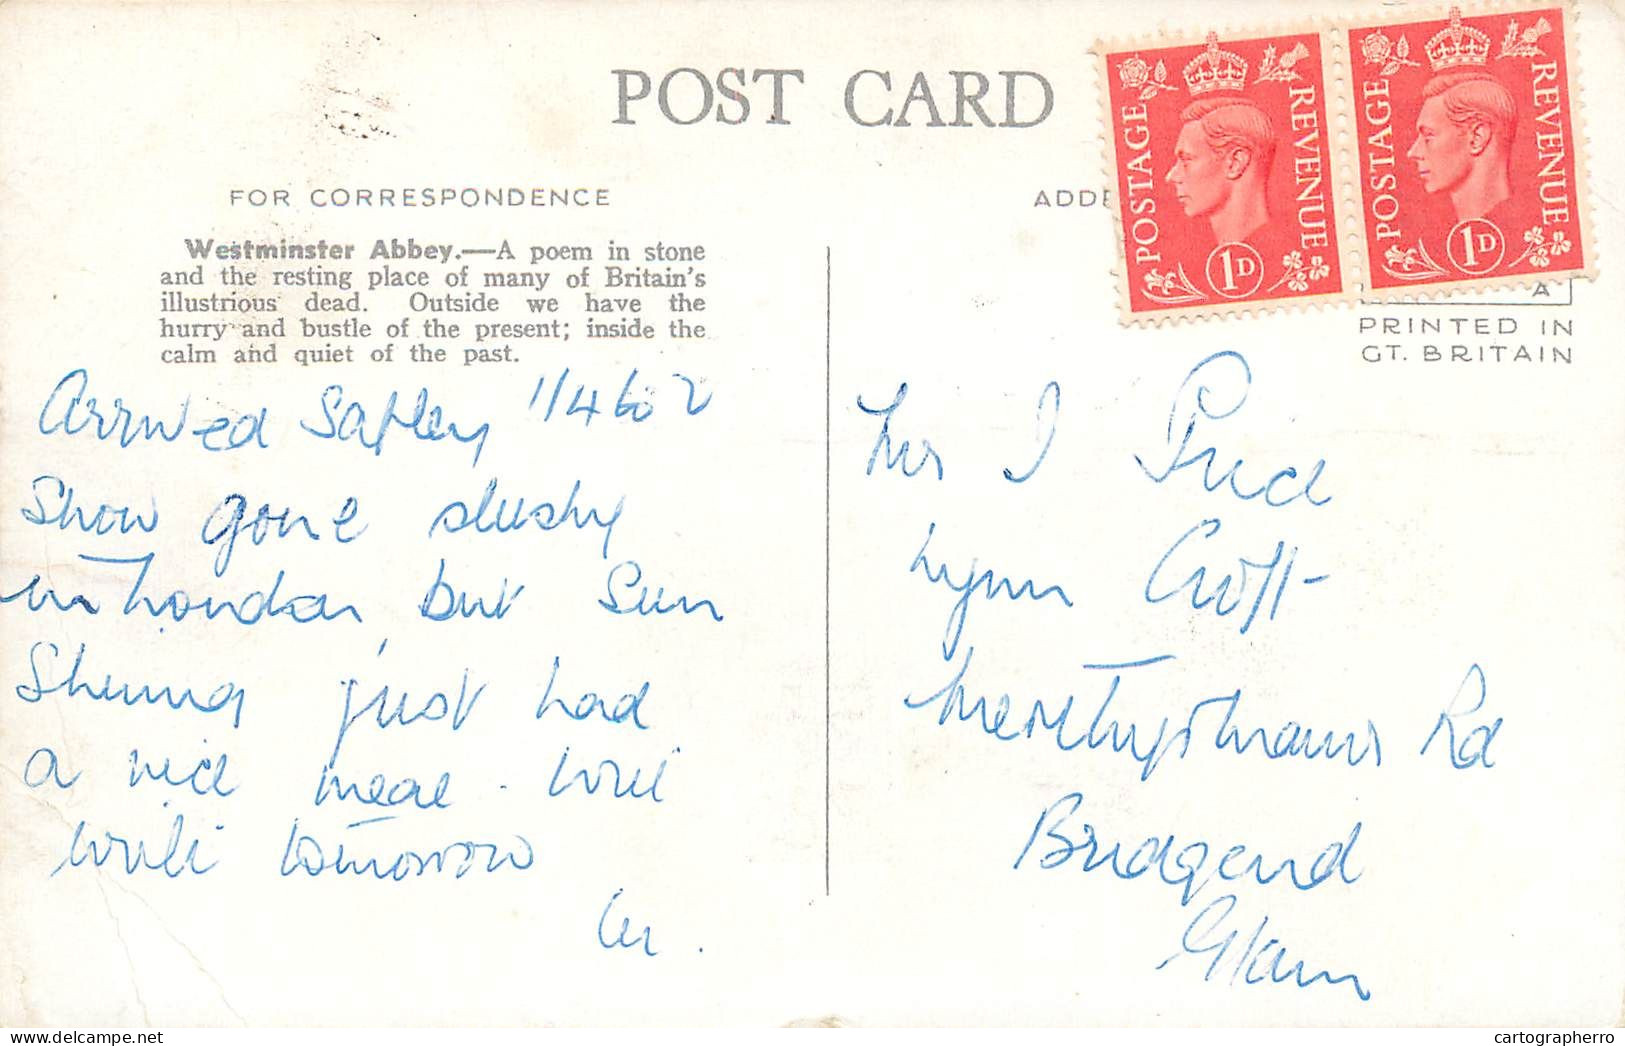 POST CARD
FOR CORRESPONDENCE
Westminster Abbey.—A poem in stone
and the resting place of many of Britain's
illustrious dead. Outside we have the
hurry and bustle of the present; inside the
calm and quiet of the past.
Arrived Safley
Snow gone slushy
in London but Sun
Shining just had
a nice meal. Will
write tomorrow
ADD
POSTAGE REVENUE
1D
POSTAGE REVENUE
1D
A
PRINTED IN
GT. BRITAIN
Mrs J Price
Lynn Croft
Merthyrmawr Rd
Bridgend
Glam
cartographerro